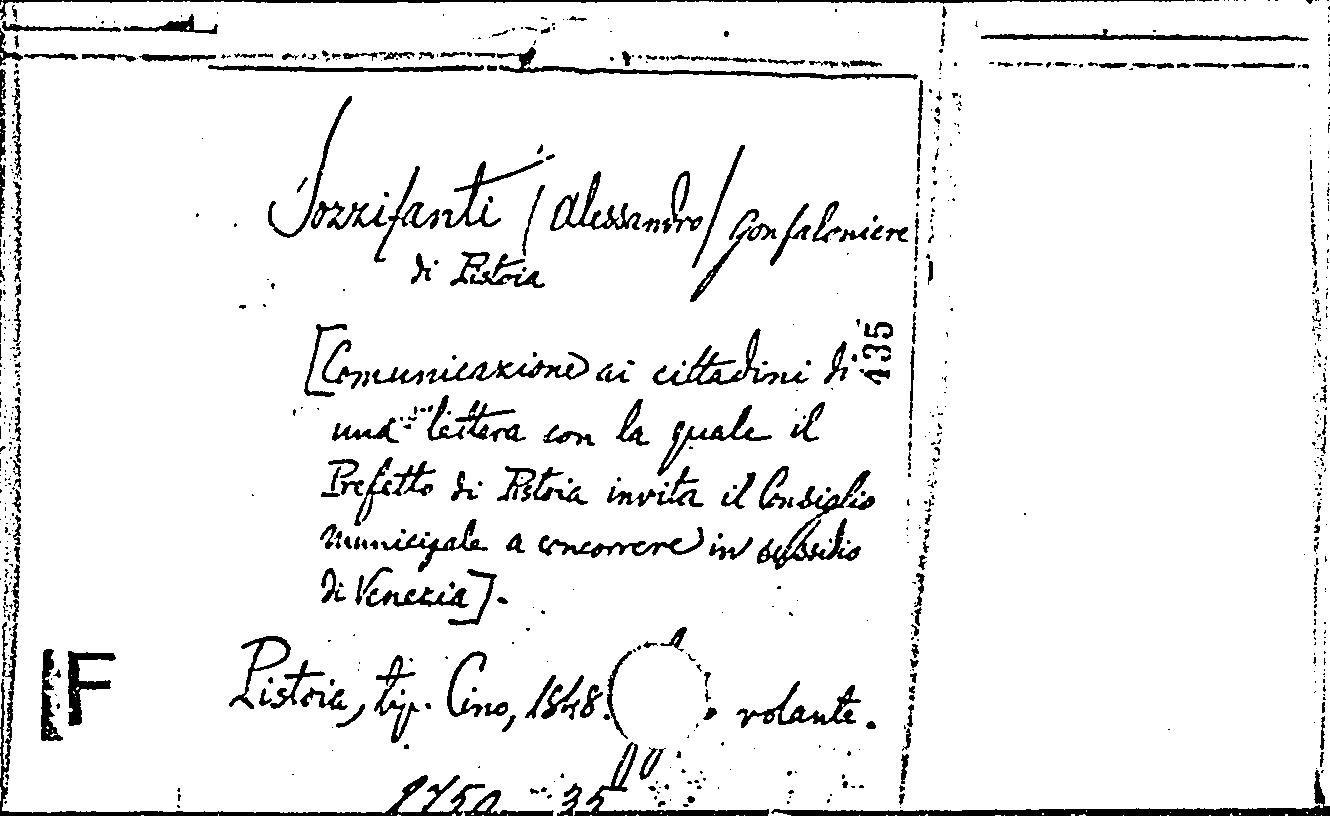 Sozzifanti (Alessandro) Gonfaloniere
di Pistoia
[Comunicazione ai cittadini di
una lettera con la quale il
Prefetto di Pistoia invita il Consiglio
municipale a concorrere in sussidio
di Venezia].
Pistoia, tip. Cino, 1848. volante.
135
F